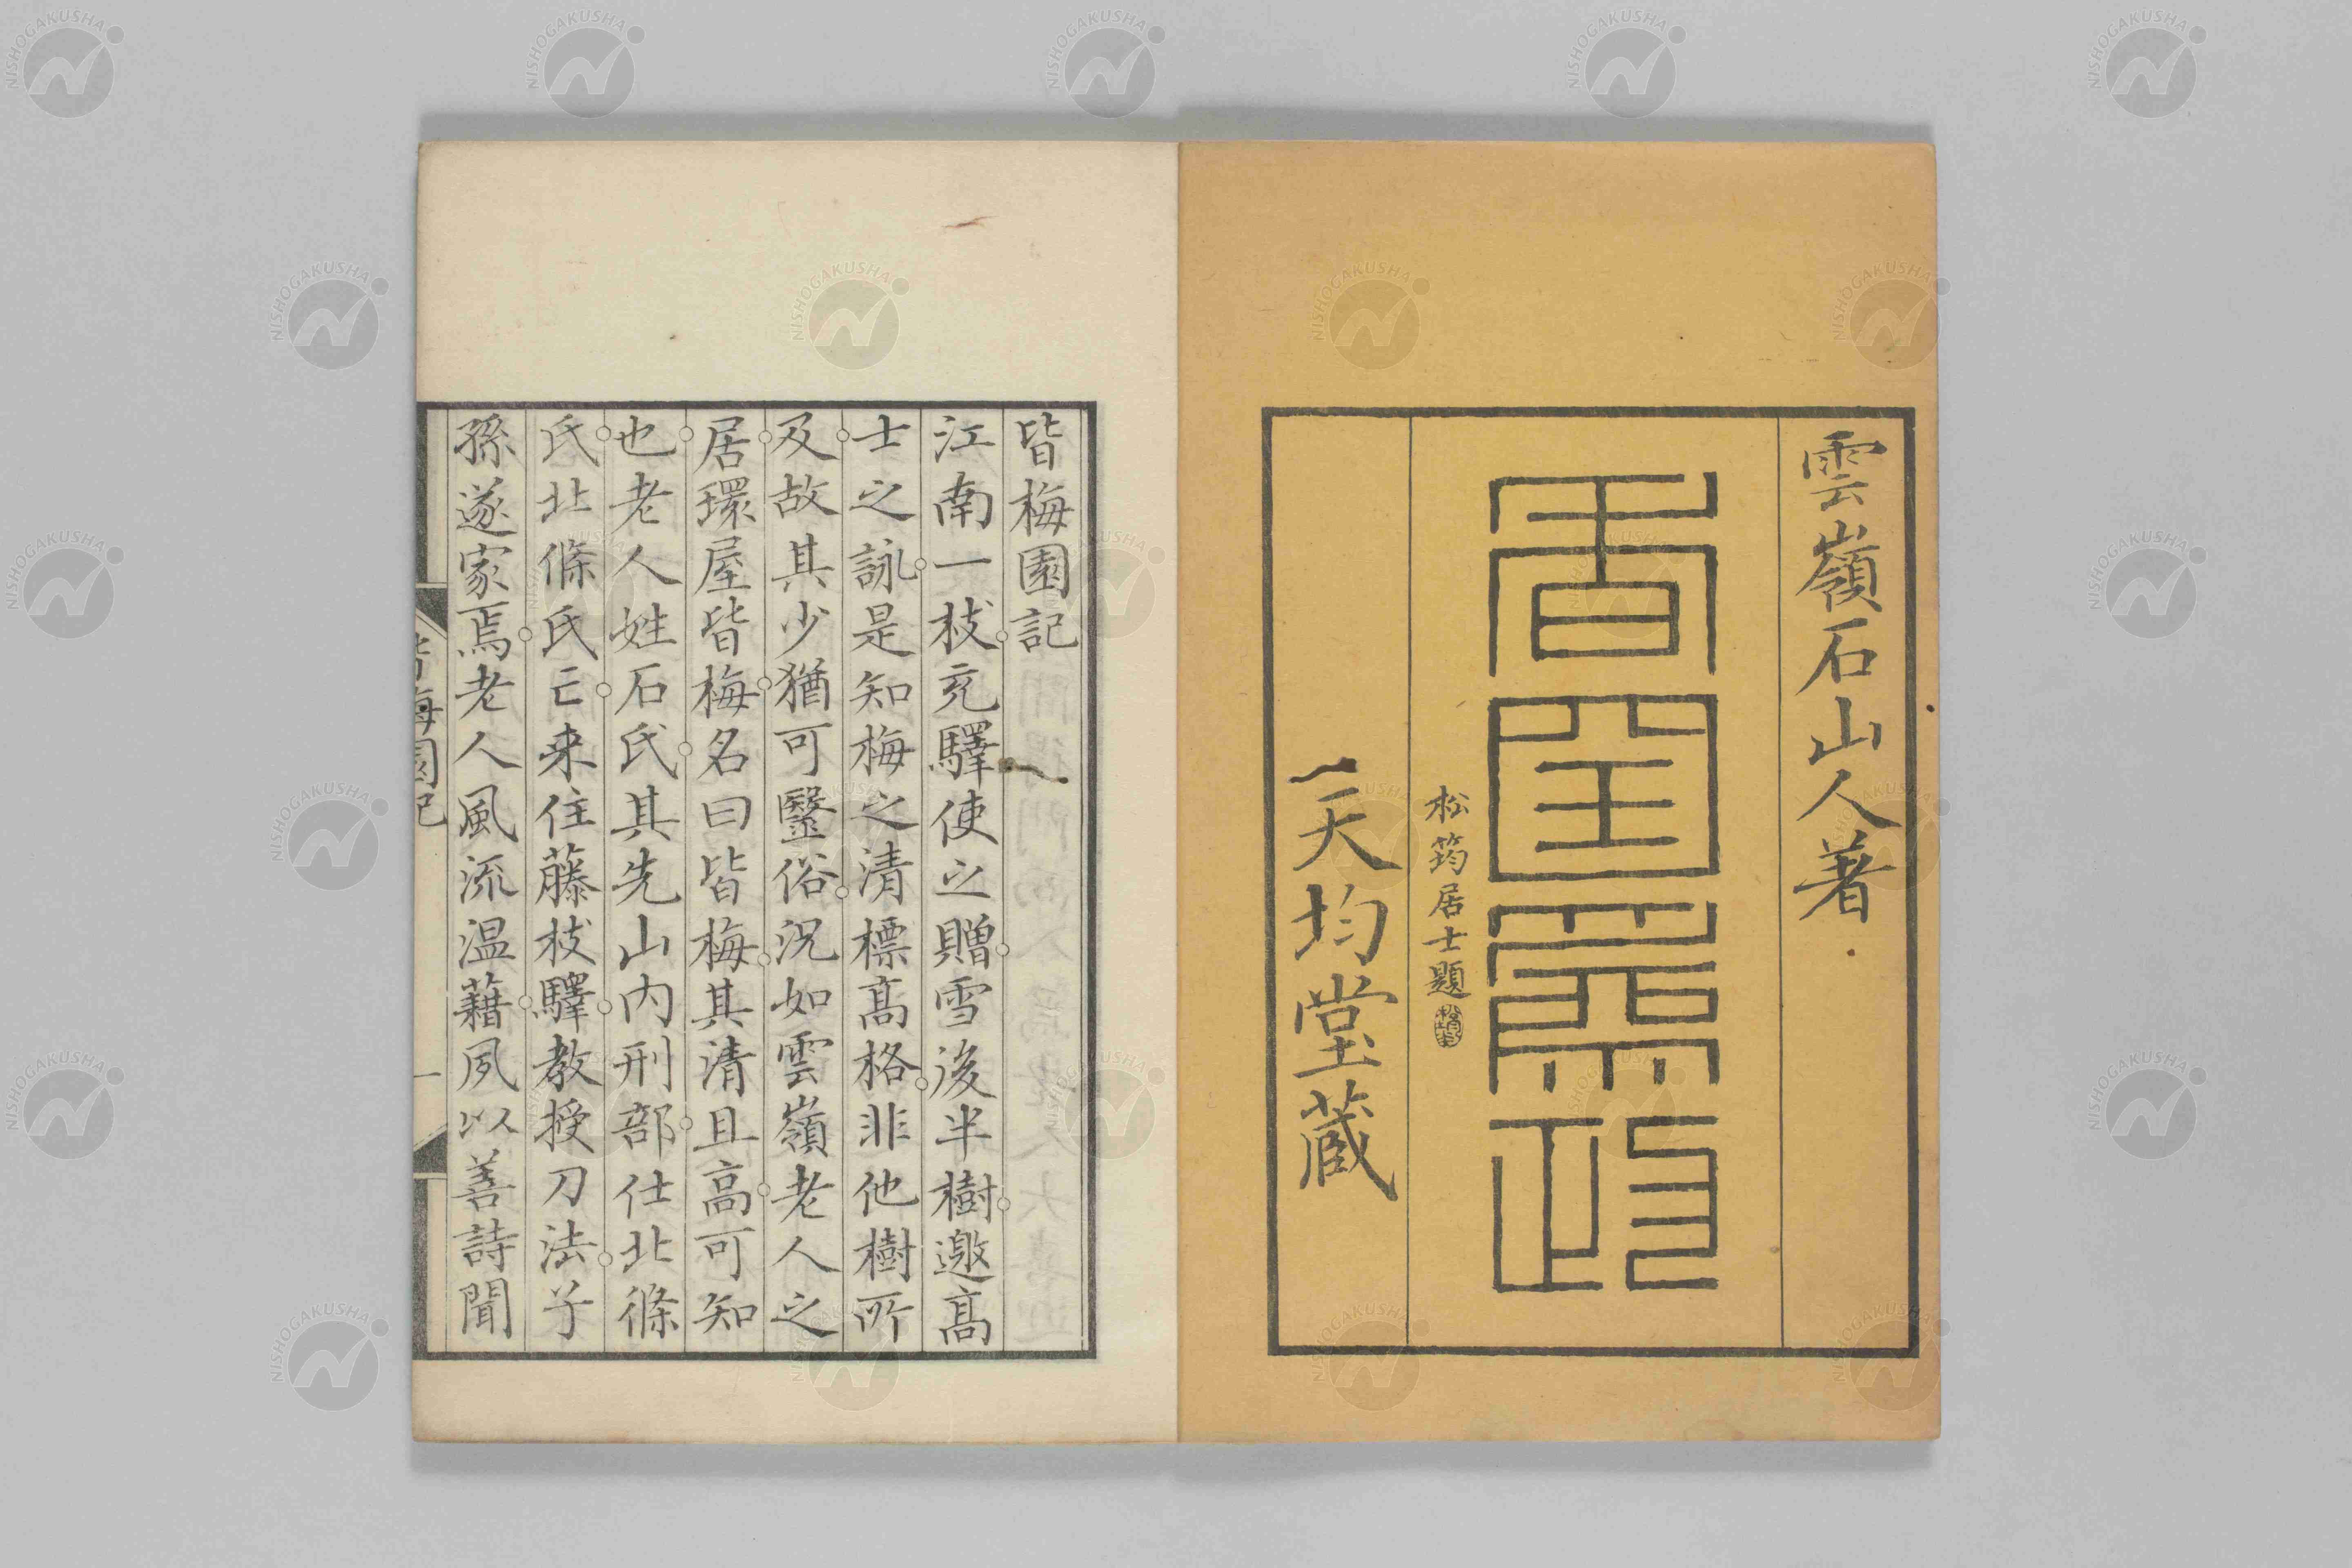 雲嶺石山人著
松筠居士題
一天均堂蔵
皆梅園記
江南一枝充驛使之贈雪後半樹邀髙
士之詠是知梅之清標髙格非他樹所
及故其少猶可醫俗況如雲嶺老人之
居環屋皆梅名曰皆梅其清且高可知
也老人姓石氏其先山内刑部仕北條
氏北條氏亡来住藤枝驛教授刀法子
孫遂家焉老人風流温藉夙以善詩聞
皆梅園記
一
NISHOGAKUSHA